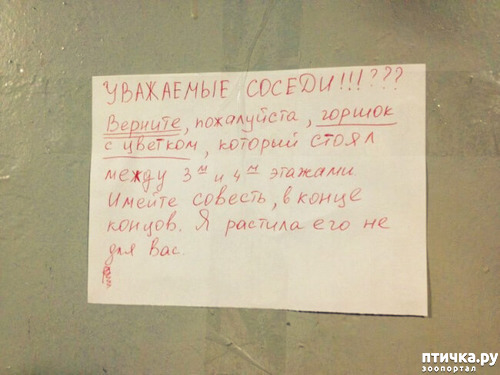 УВАЖАЕМЫЕ СОСЕДИ!!!???
Верните, пожалуйста, горшок
с цветком, который стоял
между 3м и 4м этажами.
Имейте совесть, в конце
концов. Я растила его не
для вас.
птичка.ру
зоопортал